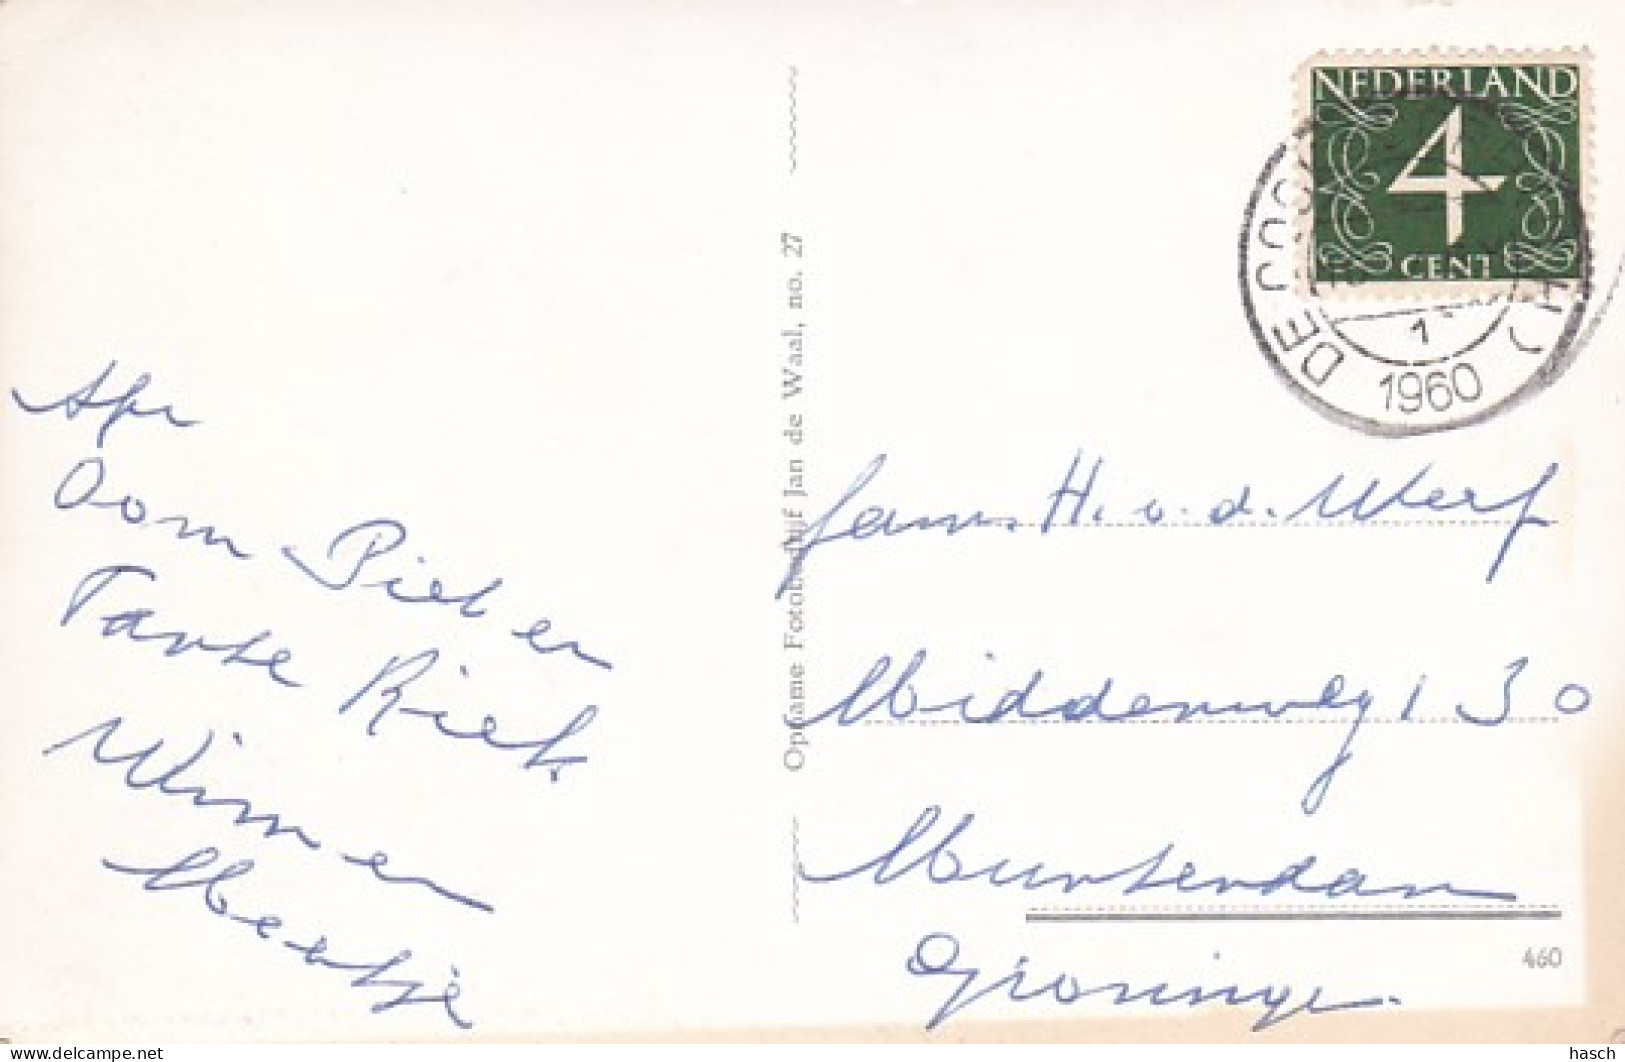 Afz
Oom Piet en
Tante Riek
Wim en
Meertje
Opname Fotobedrijf Jan de Waal, no. 27
NEDERLAND
4
CENT
DE COCK
1
1960
Fam. H. v. d. Werf
Middenweg 130
Muntendam
Groningen.
460
hasch